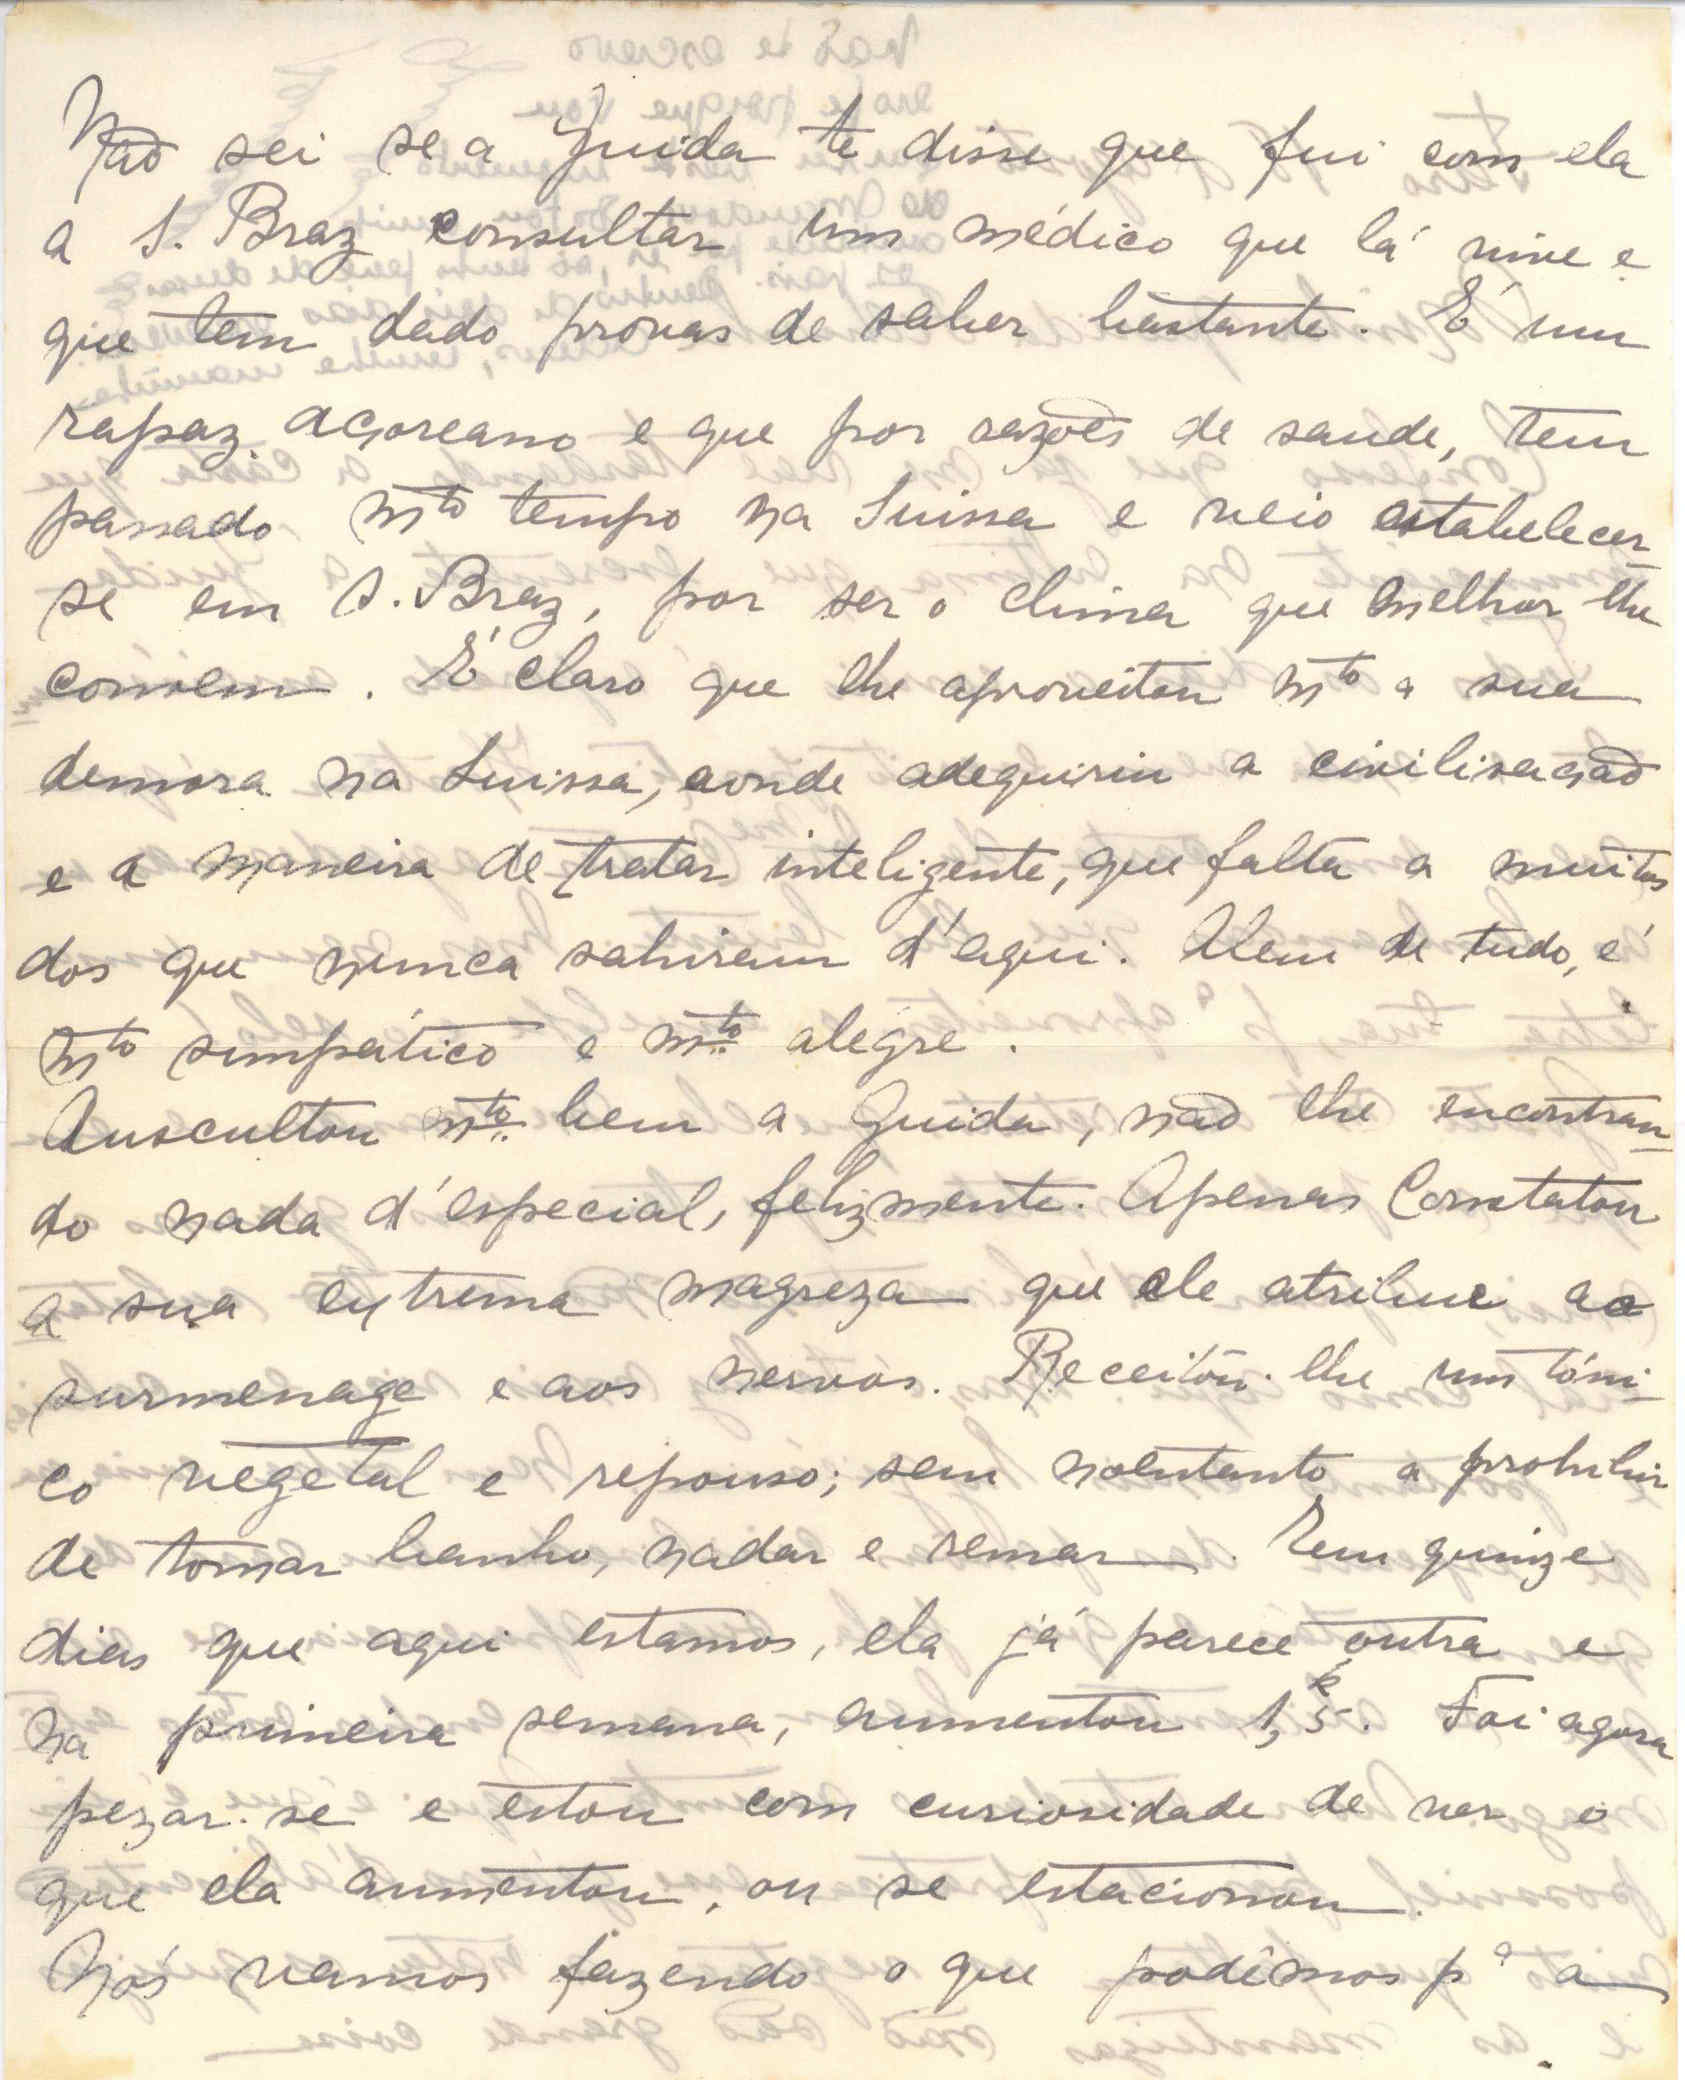 Não sei se a Guida te disse que fui com ela
a S. Braz consultar um médico que lá vive e
que tem dado provas de saber bastante. É um
rapaz açoreano e que por razões de saude, tem
passado mto tempo na Suissa e veio estabelecer-
se em S. Braz, por ser o clima que melhor lhe
convem. É claro que lhe aproveitou mto a sua
demora na Suissa, aonde adequiriu a civilisação
e a maneira de tratar inteligente, que falta a muitos
dos que nunca sahiram d'aqui. Alem de tudo, é
mto simpático e mto alegre.
Auscultou mto bem a Guida, não lhe encontran-
do nada d'especial, felizmente. Apenas Constatou
a sua extrema magreza que ele atribue ao
surmenage e aos nervos. Receitou-lhe um tóni-
co vegetal e repouso; sem noentanto a prohibir
de tomar banho, nadar e remar. Em quinze
dias que aqui estamos, ela já parece outra e
na primeira semana, aumentou 1,5k. Foi agora
pezar-se e estou com curiosidade de ver o
que ela aumentou, ou se estacionou.
Nós vamos fazendo o que podêmos pª a